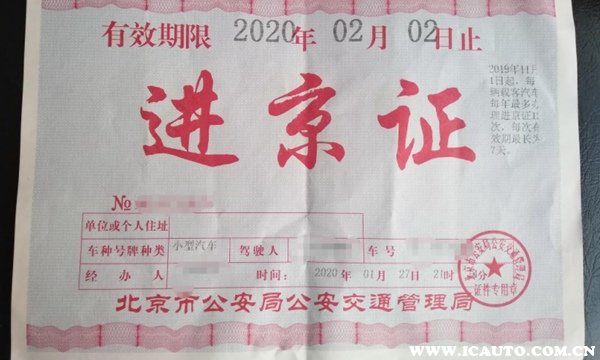 有效期限 2020年 02月 02日止
进京证
2019年11月
1日起，每
辆载客汽车
每年最多办
理进京证12
次，每次有
效期最长为
7天。
№
单位或个人住址
车种号牌种类 小型汽车 驾驶人 车号
经办人 时间： 2020 年 01月 27日 21时 分
北京市公安局公安交通管理局
证件专用章
WWW.ICAUTO.COM.CN